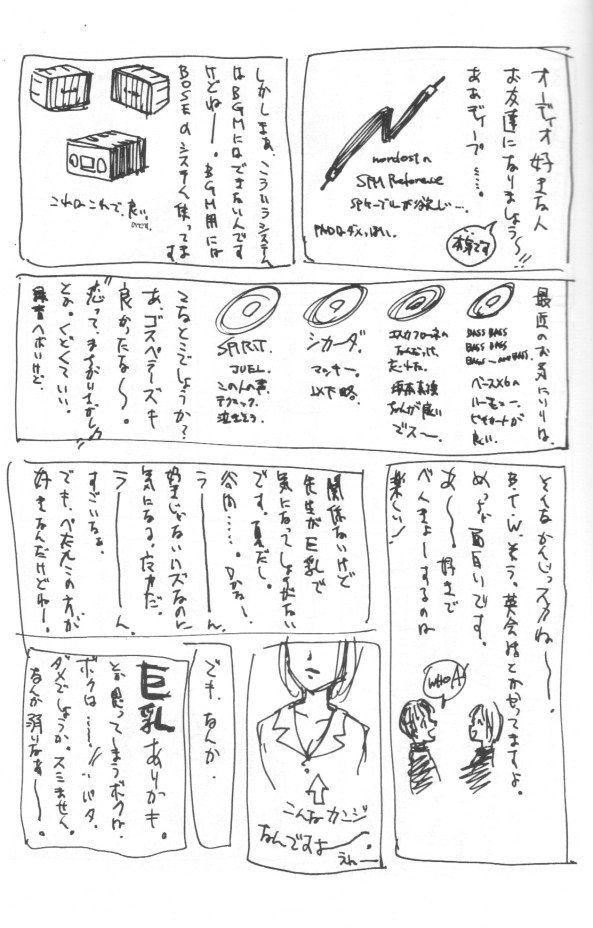 オーディオ好きな人
お友達になりましょう〜!!
ああディープ……。
nordostの
SPM Reference
SPケーブルが欲し…。
本気です
しかしまあ、こういうシステム
はBGMにはできないんです
けどねー。BGM用には
BOSEのシステム使ってま
す
これはこれで、良い。
のです。
最近のお気にいりは、
BASS BASS
BASS BASS
BASS
ベース×6の
ハーモニー。
が
良い。
坂本真綾
ちゃんが良い
でスー。
シカーダ。
マッキー。
以下略。
SPIRIT.
JUEL.
この人の声、
テクニック、
泣きそう。
こんなとこでしょうか?
あ、ゴスペラーズも
良かったな〜。
とか。くどくていい。
録音へボいけど、
そんなかんじっスかね〜。
B.T.W.そう。英会話とかやってますよ。
めっちゃ面白いです。
あ〜〜。好きで
べんきょーするのは
楽しい!
WHOA!
関係ないけど
先生が巨乳で
気になってしょうがない
です。夏だし。
谷間……。
うーーーーん。
好きじゃないハズなのに
気になる。
うーーーーん。
すごいなぁ。
でも、ぺたんこの方が
好きなんだけどねー。
こんなカンジ
なんですよー。
でも、なんか、
巨乳ありがも。
とか思ってしまうボクは、
ボクは……!!
ダメでしょうか。スミません。
なんか溺りなぁ〜〜。